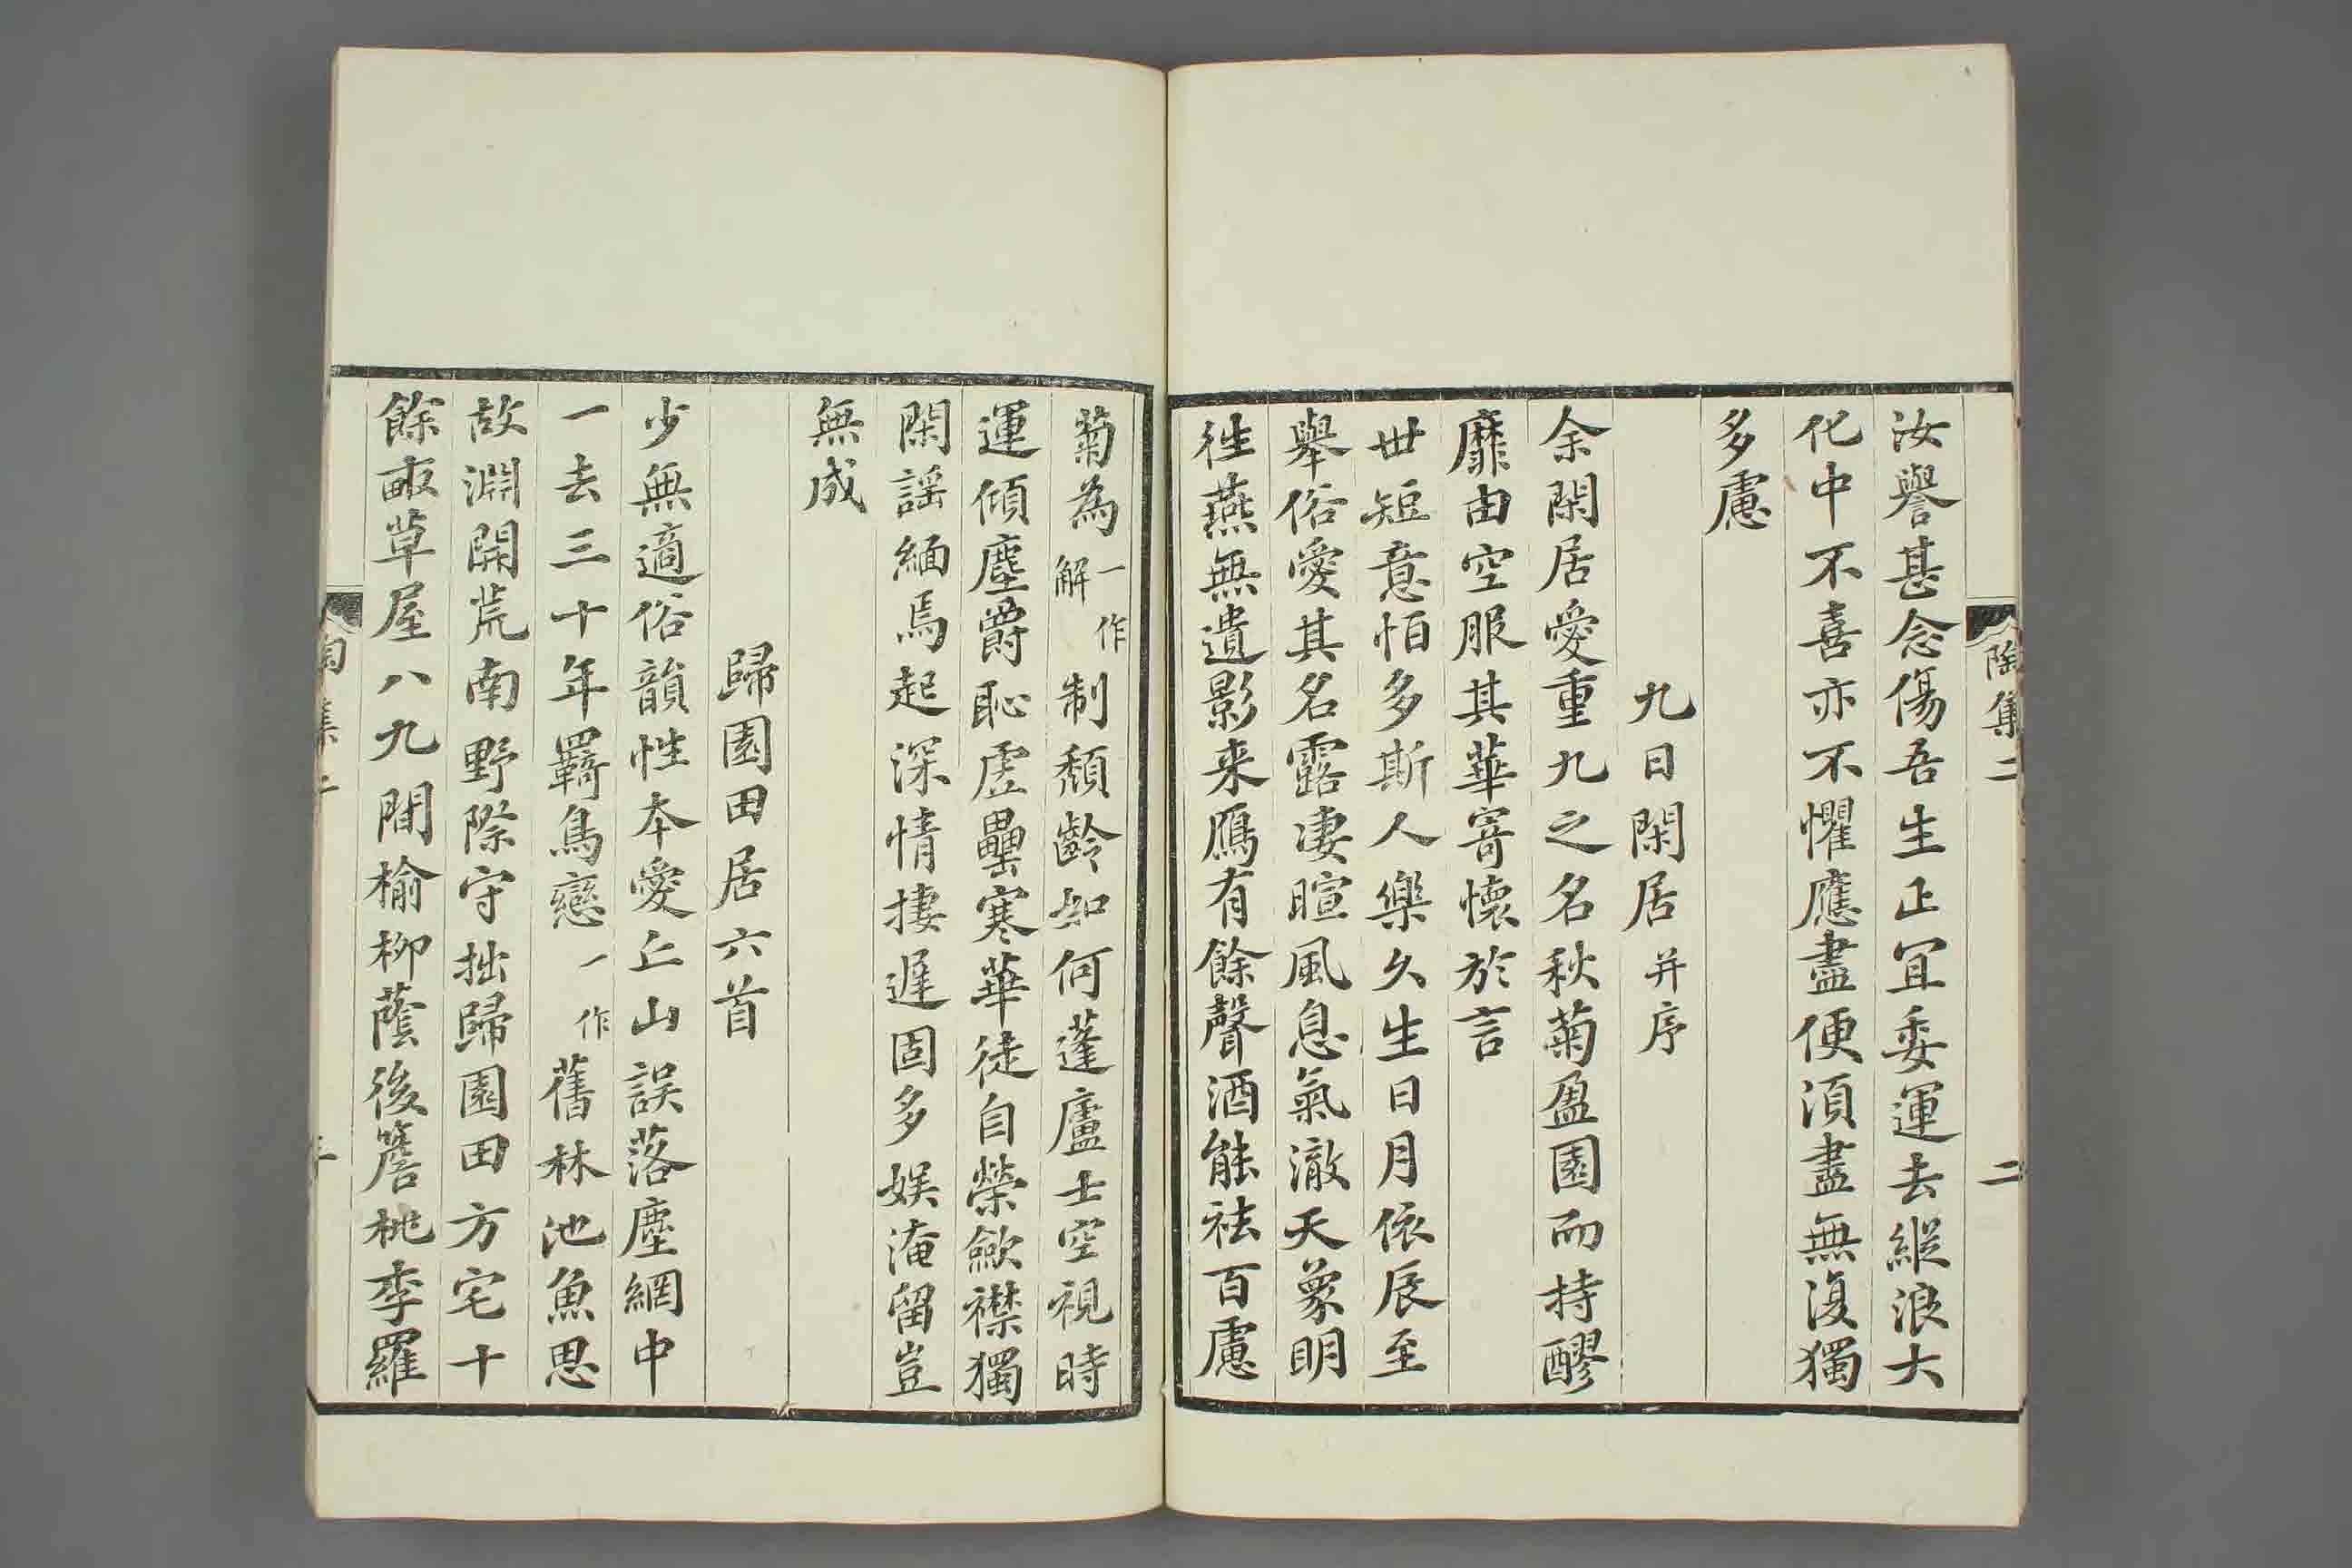 陶集二 二
汝譽甚念傷吾生正宜委運去縱浪大
化中不喜亦不懼應盡便湏盡無復獨
多慮
九日閑居并序
余閑居愛重九之名秋菊盈園而持醪
靡由空服其華寄懷於言
丗短意恒多斯人樂久生日月依辰至
舉俗愛其名露凄暄風息氣澈天象明
徃燕無遺影来鴈有餘聲酒能祛百慮
菊為一作解制頹齡如何蓬廬士空視時
運傾塵爵恥虛罍寒華徒自榮斂襟獨
閑謡緬焉起深情捿遲固多娱淹留豈
無成
歸園田居六首
少無適俗韻性本愛丘山誤落塵網中
一去三十年羈鳥戀一作舊林池魚思
故淵開荒南野際守拙歸園田方宅十
餘畝草屋八九間榆柳蔭後簷桃李羅